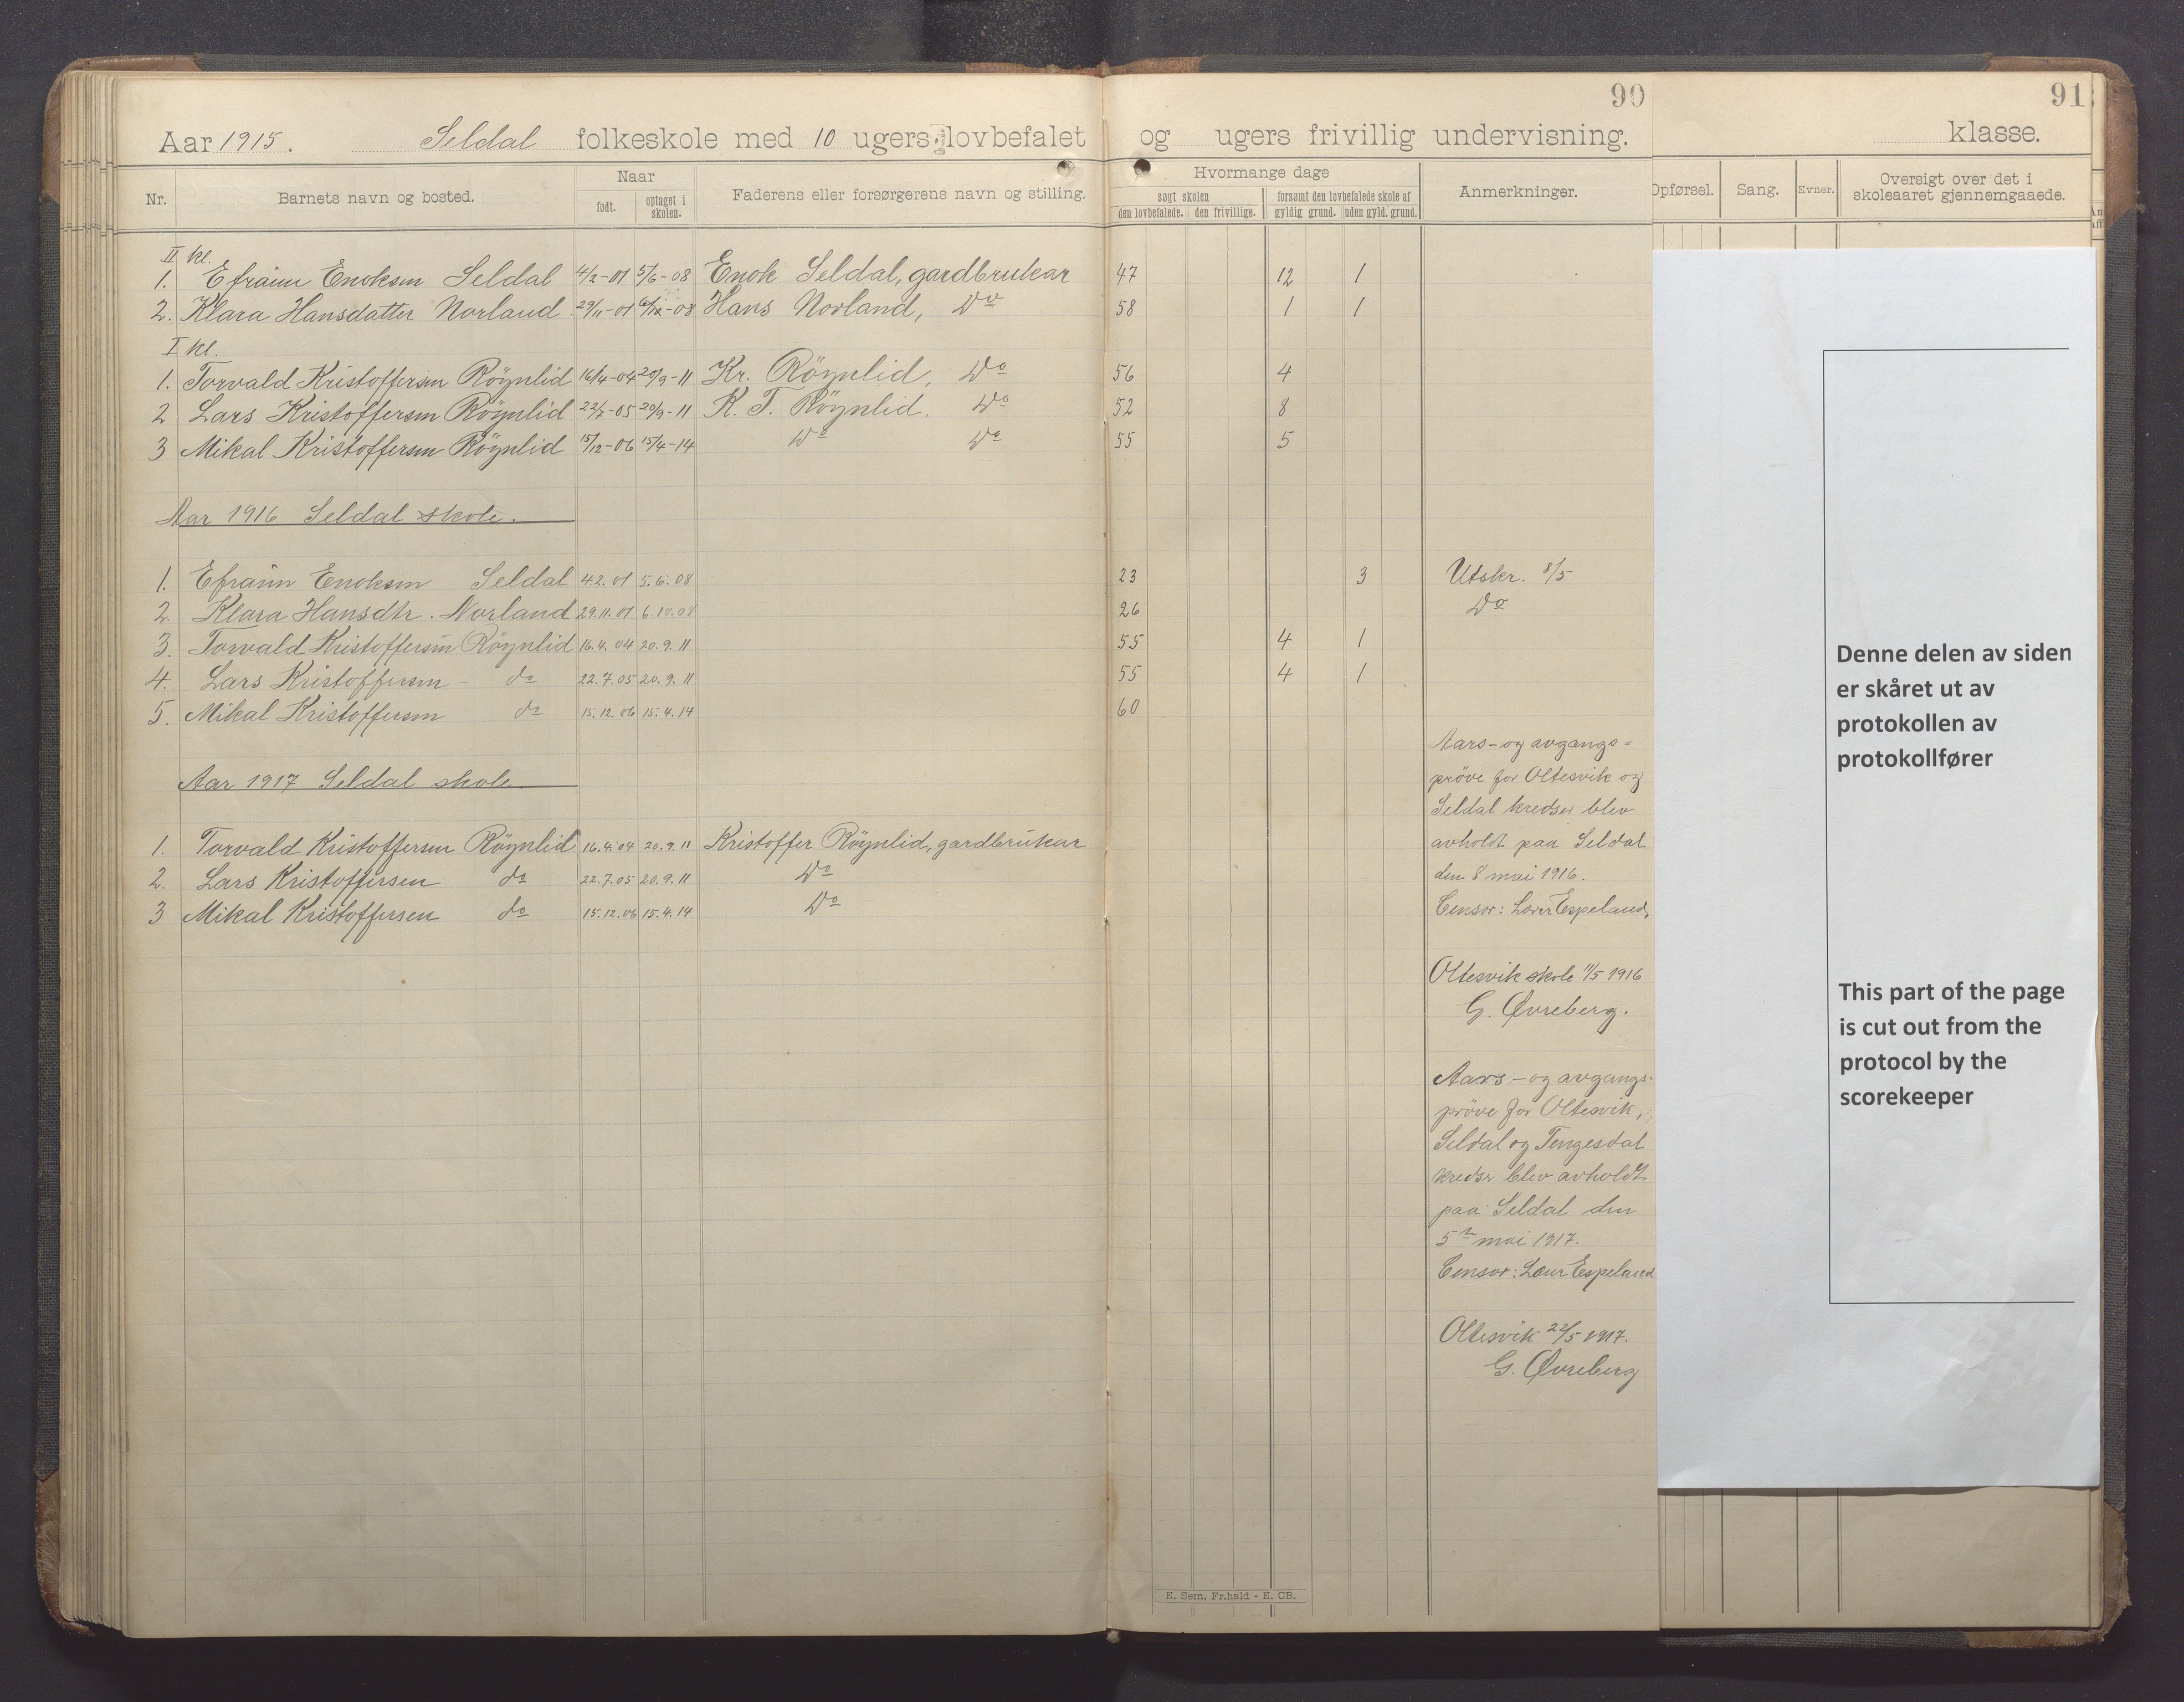 90
91
Aar 1915. Seldal folkeskole med 10 ugers lovbefalet og ugers frivillig undervisning. klasse.
Nr. Barnets navn og bosted. Naar født. optaget i skolen. Faderens eller forsørgerens navn og stilling. Hvormange dage søgt skolen den lovbefalede. den frivillige. forsømt den lovbefalede skole af gyldig grund. uden gyld. grund. Anmerkninger. Opførsel. Sang. Evner. Oversigt over det i skoleaaret gjennemgaaede.
II kl.
1. Efraim Enoksen Seldal 4/2-01 5/6-08 Enok Seldal, gardbrukar 47 12 1
2. Klara Hansdatter Norland 29/11-01 6/10-08 Hans Norland, Do 58 1 1
I kl.
1. Torvald Kristoffersen Röynlid 16/4-04 20/9-11 Kr. Röynlid, Do 56 4
2 Lars Kristoffersen Röynlid 22/7-05 20/9-11 K. T. Röynlid. Do 52 8
3 Mikal Kristoffersen Röynlid 15/12-06 15/4-14 Do Do 55 5
Aar 1916 Seldal skole.
1. Efraim Enoksen Seldal 4.2.01 5.6.08 23 3 Utskr. 8/5
2. Klara Hansdtr. Norland 29.11.01 6.10.08 26 Do
3. Torvald Kristoffersen Röynlid 16.4.04 20.9.11 55 4 1
4. Lars Kristoffersen do 22.7.05 20.9.11 55 4 1
5. Mikal Kristoffersen do 15.12.06 15.4.14 60
Aar 1917 Seldal skole
1. Torvald Kristoffersen Röynlid 16.4.04 20.9.11 Kristoffer Röynlid, gardbrukar
2. Lars Kristoffersen do 22.7.05 20.9.11 Do
3 Mikal Kristoffersen do 15.12.06 15.4.14 Do
Aars- og avgangs=
pröve for Oltesvik og
Seldal kredser blev
avholdt paa Seldal
den 8 mai 1916.
Censor: Espeland,
Oltesvik skole 11/5 1916
G. Øvreberg.
Aars- og avgangs-
pröve for Oltesvik,
Seldal og Tengesdal
kredse blev avholdt
paa Seldal den
5te mai 1917.
Censor: Espeland
Oltesvik 22/5 1917.
G. Øvreberg
E. Sem, Fr.hald - E. CB.
Denne delen av siden
er skåret ut av
protokollen av
protokollfører
This part of the page
is cut out from the
protocol by the
scorekeeper